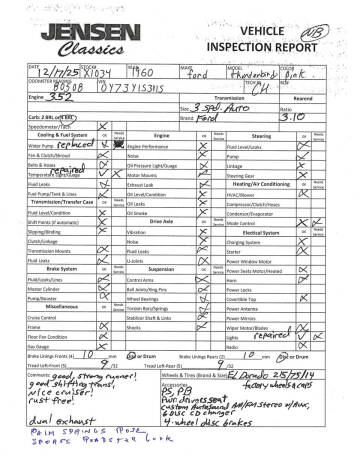 JENSEN
Classics
VEHICLE
INSPECTION REPORT
NB
DATE 12/17/25 X1034 YEAR 1960 MAKE Ford MODEL Thunderbird COLOR Pink
ODOMETER READING 80508 VIN 0Y73Y153115 TECH CH
Engine 352 Transmission Rearend
Size 3 Spd. Auto Ratio
Curb: 2 BRL or 4 BRL Brand Ford 3.10
Speedometer/Tach X
Cooling & Fuel System OK Needs Service Engine OK Needs Service Steering OK Needs Service
Water Pump replaced X Engine Performance X Fluid Level/Leaks X
Fan & Clutch/Shroud X Noise X Pump X
Belts & Hoses X Oil Pressure Light/Guage X Linkage X
repaired
Temperature Light/Guage X Motor Mounts X Steering Gear X
Fluid Leaks X Exhaust Leak X Heating/Air Conditioning OK Needs Service
Fuel Pump/Tank & Lines X Oil Level/Condition X HVAC/Blower X
Transmission/Transfer Case OK Needs Service Oil Leaks X Compressor/Clutch/Hoses
Fluid Level/Condition X Oil Smoke X Condensor/Evaporator
Shift Points (if automatic) X Drive Axle OK Needs Service Mode Control X
Slipping/Binding X Vibration X Electrical System OK Needs Service
Clutch/Linkage Noise X Charging System X
Transmission Mounts X Fluid Leaks X Starter X
Fluid Leaks X U-Joints X Power Window Motor
Brake System OK Needs Service Suspension OK Needs Service Power Seats Motor/Heated X
Fluid/Leaks/Lines X Control Arms X Horn X
Master Cylinder X Ball Joints/King Pins X Power Locks
Pump/Booster X Wheel Bearings X Covertible Top X
Miscellaneous OK Needs Service Torsion Bars/Springs X Power Antenna
Cruise Control Stabilizer Shaft & Links X Power Mirrors
Frame X Shocks X Wiper Motor/Blades X
Floor Pan Condition X Lights repaired X
Gas Gauge X Radio X
Brake Linings Fronts (4) 10 mm Disc or Drum Brake Linings Rears (2) 10 mm Disc or Drum
Tread Left-Front (5) 9 /32 Tread Left-Rear (5) 9 /32
Comments: good, strong runner! Wheels & Tires (Brand & Size) El Dorado 215/75/14
good shifting trans! Accessories factory wheels & caps
nice cruiser! PS, PB
rust free! Pwr drivers seat
custom Autosound AM/FM stereo w/Aux,
6 Disc CD changer
dual exhaust 4-wheel disc brakes
PALM SPRINGS ROSE
SPORTS ROADSTER LOOK